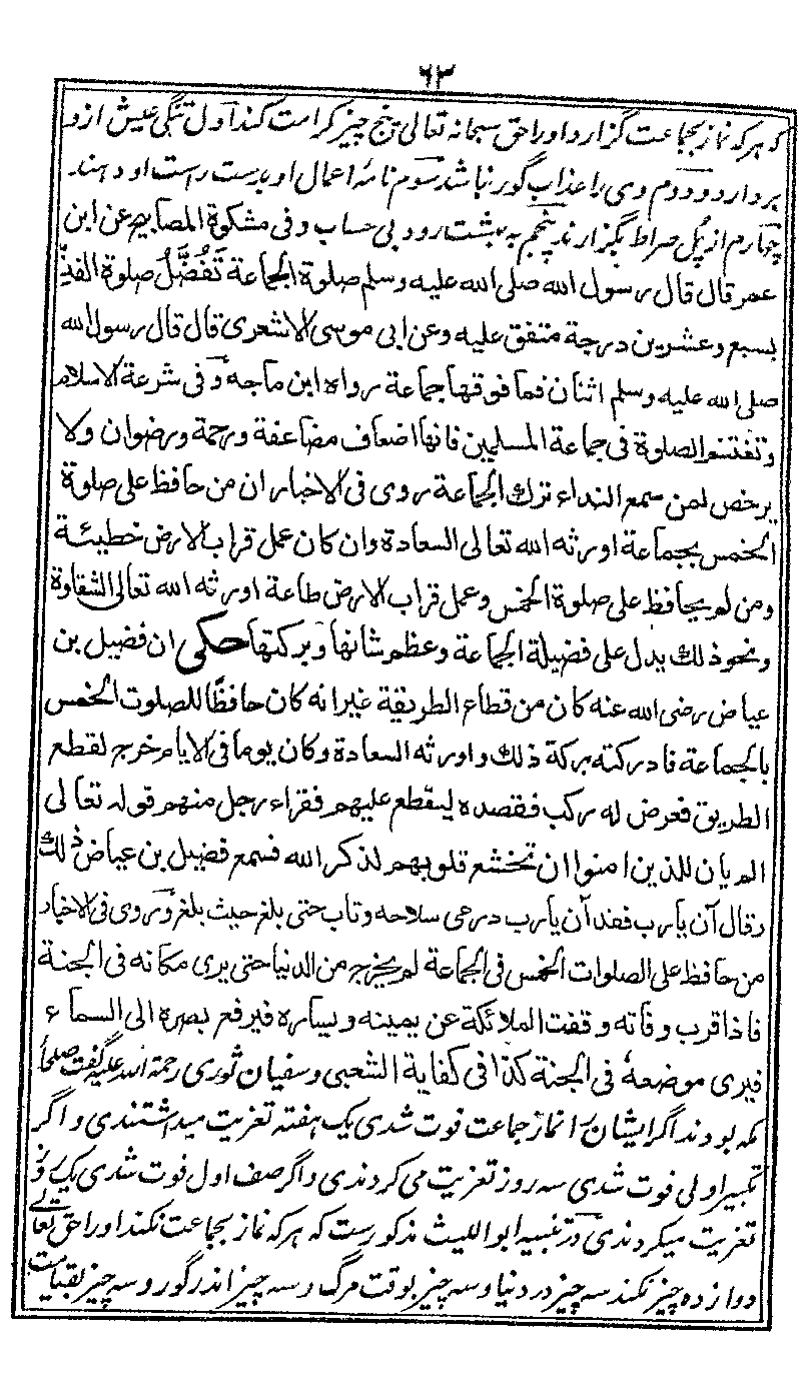 ٦٣
که هرکه نماز بجماعت گزارد اورا حق سبحانه تعالی پنج چیز کرامت کند اول تنگی عیش ازو
بردارد و دوم وی را عذاب گور نباشد سوم نامۂ اعمال او بدست راست او دهند
چهارم از پل صراط بگزارند پنجم به بهشت رود بی حساب و فی مشکوة المصابیح عن ابن
عمر قال قال رسول الله صلی الله علیه وسلم صلوة الجماعة تَفْضُلُ صلوة الفذِّ
بسبع وعشرین درجة متفق علیه وعن ابی موسی الاشعری قال قال رسول الله
صلی الله علیه وسلم اثنان فما فوقها جماعة رواه ابن ماجه وفی شرعة الاسلام
وتغتنم الصلوة فی جماعة المسلمین فانها اضعاف مضاعفة ورحمة ورضوان ولا
یرخص لمن سمع النداء ترك الجماعة روی فی الاخبار ان من حافظ علی صلوة
الخمس بجماعة اورثه الله تعالی السعادة وان کان عمل قراب الارض خطیئة
ومن لم یحافظ علی صلوة الخمس وعمل قراب الارض طاعة اورثه الله تعالی الشقاوة
ونحو ذلك یدل علی فضیلة الجماعة وعظم شانها وبرکتها حکی ان فضیل بن
عیاض رضی الله عنه کان من قطاع الطریقة غیر انه کان حافظًا للصلوت الخمس
بالجماعة فادرکته برکة ذلك واورثه السعادة وکان یوما فی الایام خرج لقطع
الطریق فعرض له رکب فقصده لیقطع علیهم فقراء رجل منهم قوله تعالی
الم یان للذین امنوا ان تخشع قلوبهم لذکر الله فسمع فضیل بن عیاض ذلك
وقال آن یارب فقد آن یارب درعی سلاحه وتاب حتی بلغ حیث بلغ وروی فی الاخبار
من حافظ علی الصلوات الخمس فی الجماعة لم یخرج من الدنیا حتی یری مکانه فی الجنة
فاذا قرب وفاته وقفت الملائکة عن یمینه ویساره فیرفع بصره الی السماء
فیری موضعهٗ فی الجنة کذا فی کفایة الشعبی وسفیان ثوری رحمة الله علیه گفت صلحا
که بودند اگر ایشان را نماز جماعت فوت شدی یک هفته تعزیت میداشتندی و اگر
تکبیر اولی فوت شدی سه روز تعزیت می کردندی و اگر صف اول فوت شدی یک روز
تعزیت میکردندی در تنبیه ابو اللیث مذکورست که هرکه نماز بجماعت نکند اورا حق تعالے
دوازده چیز نکند سه چیز در دنیا و سه چیز بوقت مرگ و سه چیز اندر گور و سه چیز بقیامت